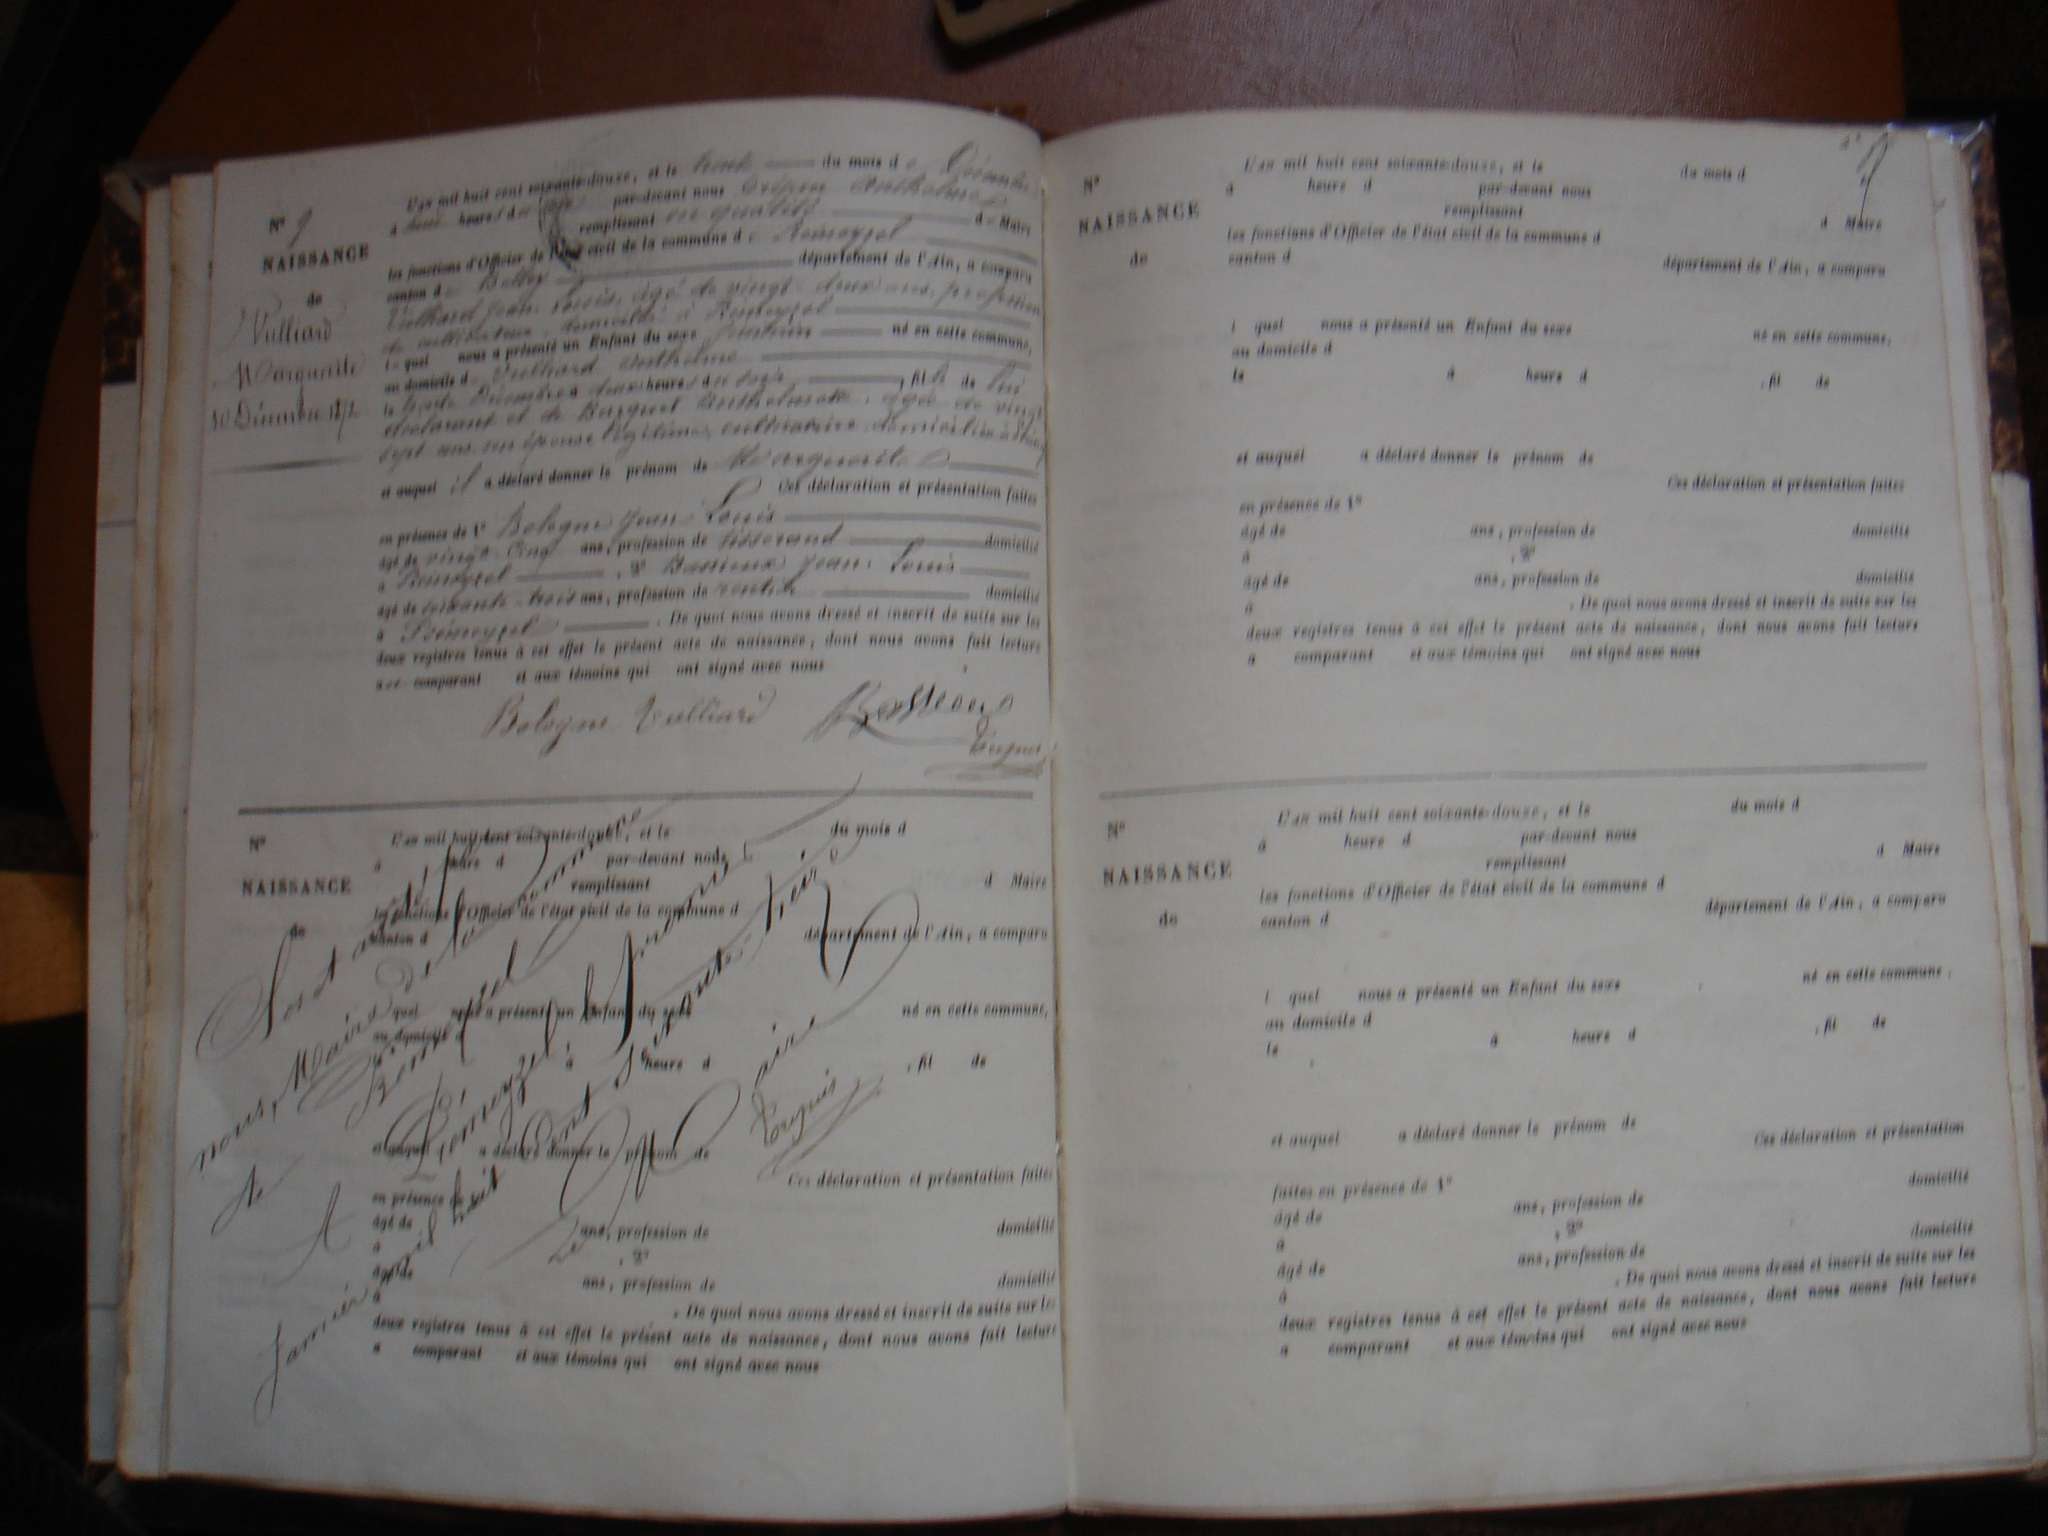 N° 9
NAISSANCE
de
Vulliard
Marguerite
30 Décembre 1872
L'an mil huit cent soixante-douze, et le trente du mois de Décembre
à heures du soir par-devant nous Anthelme
remplissant en qualité de Maire
les fonctions d'Officier de l'état civil de la commune de Prémeyzel
canton de Belley département de l'Ain, a comparu
Vulliard Jean Louis, âgé de vingt-deux ans, profession
de cultivateur, domicilié à Prémeyzel
lequel nous a présenté un Enfant du sexe féminin né en cette commune,
au domicile de Vulliard Anthelme
le trente Décembre à deux heures du soir, fille de lui
déclarant et de Anthelmette, âgée de vingt
sept ans son épouse légitime, cultivatrice domiciliée à
et auquel il a déclaré donner le prénom de Marguerite
Ces déclaration et présentation faites
en présence de 1° Bologne Jean Louis
âgé de vingt-cinq ans, profession de tisserand domicilié
à Prémeyzel, 2° Jean Louis
âgé de soixante-trois ans, profession de rentier domicilié
à Prémeyzel. De quoi nous avons dressé et inscrit de suite sur les
deux registres tenus à cet effet le présent acte de naissance, dont nous avons fait lecture
au comparant et aux témoins qui ont signé avec nous
Bologne Vulliard
N°
NAISSANCE
de
L'an mil huit cent soixante-douze, et le du mois d
à heure d par-devant nous
remplissant d Maire
les fonctions d'Officier de l'état civil de la commune d
canton d département de l'Ain, a comparu
l quel nous a présenté un Enfant du sexe né en cette commune,
au domicile d
à heure d , fil de
et auquel a déclaré donner le prénom de
Ces déclaration et présentation faites
en présence de
âgé de ans, profession de domicilié
à , 2°
âgé de ans, profession de domicilié
à . De quoi nous avons dressé et inscrit de suite sur les
deux registres tenus à cet effet le présent acte de naissance, dont nous avons fait lecture
a comparant et aux témoins qui ont signé avec nous
nous, Maire de la commune
de Prémeyzel
A Prémeyzel, le
Janvier mil huit cent soixante-treize
Le Maire
N°
NAISSANCE
de
L'an mil huit cent soixante-douze, et le du mois d
à heure d par-devant nous
remplissant d Maire
les fonctions d'Officier de l'état civil de la commune d
canton d département de l'Ain, a comparu
l quel nous a présenté un Enfant du sexe né en cette commune,
au domicile d
le à heure d , fil de
et auquel a déclaré donner le prénom de
Ces déclaration et présentation faites
en présence de 1°
âgé de ans, profession de domicilié
à , 2°
âgé de ans, profession de domicilié
à . De quoi nous avons dressé et inscrit de suite sur les
deux registres tenus à cet effet le présent acte de naissance, dont nous avons fait lecture
a comparant et aux témoins qui ont signé avec nous
N°
NAISSANCE
de
L'an mil huit cent soixante-douze, et le du mois d
à heure d par-devant nous
remplissant d Maire
les fonctions d'Officier de l'état civil de la commune d
canton d département de l'Ain, a comparu
l quel nous a présenté un Enfant du sexe né en cette commune,
au domicile d
le à heure d , fil de
et auquel a déclaré donner le prénom de
Ces déclaration et présentation
faites en présence de 1°
âgé de ans, profession de domicilié
à , 2°
âgé de ans, profession de domicilié
à . De quoi nous avons dressé et inscrit de suite sur les
deux registres tenus à cet effet le présent acte de naissance, dont nous avons fait lecture
a comparant et aux témoins qui ont signé avec nous